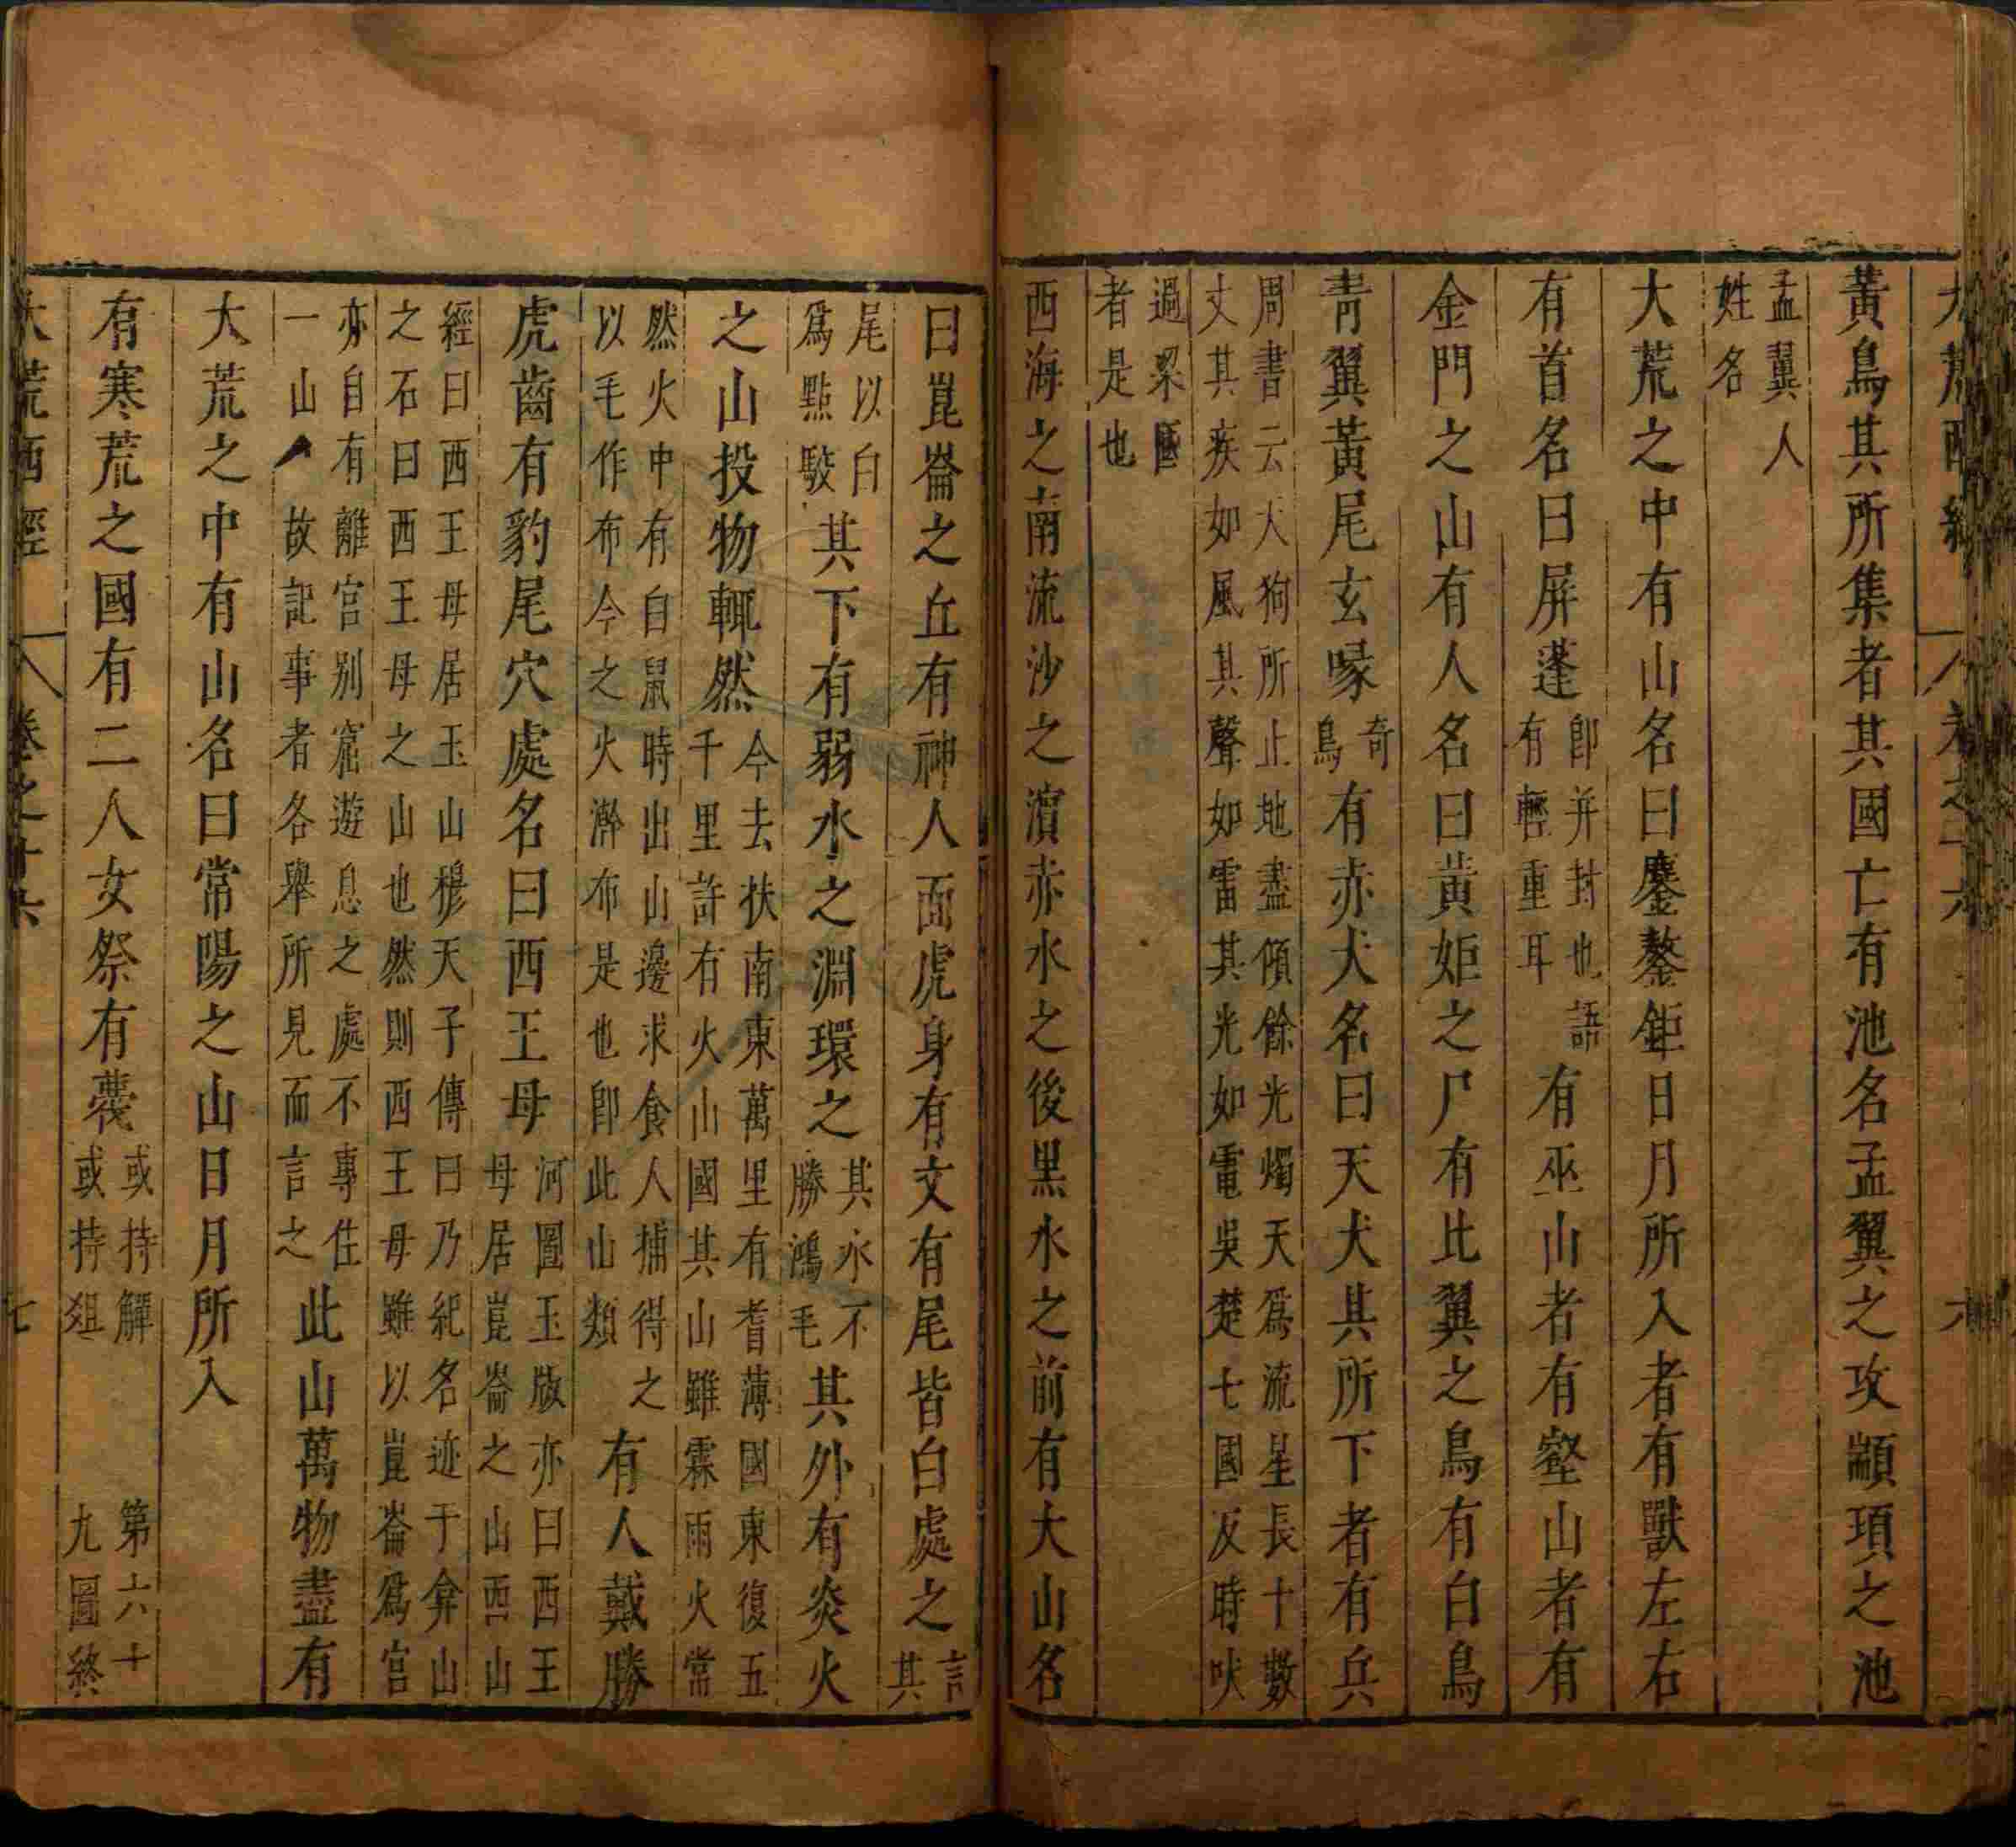 大荒西經 卷之十六 六
黃鳥其所集者其國亡有池名孟翼之攻顓頊之池
孟翼人
姓名
大荒之中有山名曰鏖鏊鉅日月所入者有獸左右
有首名曰屏蓬
即并封也語
有輕重耳
有巫山者有壑山者有
金門之山有人名曰黃姖之尸有比翼之鳥有白鳥
青翼黃尾玄喙
奇
鳥
有赤犬名曰天犬其所下者有兵
周書云天狗所止地盡傾餘光燭天爲流星長十數
丈其疾如風其聲如雷其光如電吳楚七國反時吠
過梁國
者是也
西海之南流沙之濵赤水之後黑水之前有大山名
曰崑崙之丘有神人面虎身有文有尾皆白處之
言
其
尾以白
爲點駮
其下有弱水之淵環之
其水不
勝鴻毛
其外有炎火
之山投物輒然
今去扶南東萬里有耆薄國東復五
千里許有火山國其山雖霖雨火常
然火中有白鼠時出山邊求食人捕得之
以毛作布今之火澣布是也即此山類
有人戴勝
虎齒有豹尾穴處名曰西王母
河圖玉版亦曰西王
母居崑崙之山西山
經曰西王母居玉山穆天子傳曰乃紀名迹于弇山
之石曰西王母之山也然則西王母雖以崑崙爲宮
亦自有離宮别窟遊息之處不專住
一山故記事者各舉所見而言之
此山萬物盡有
大荒之中有山名曰常陽之山日月所入
有寒荒之國有二人女祭有薎
或持觶
或持俎
第六十
九圖終
大荒西經 卷之十六 七